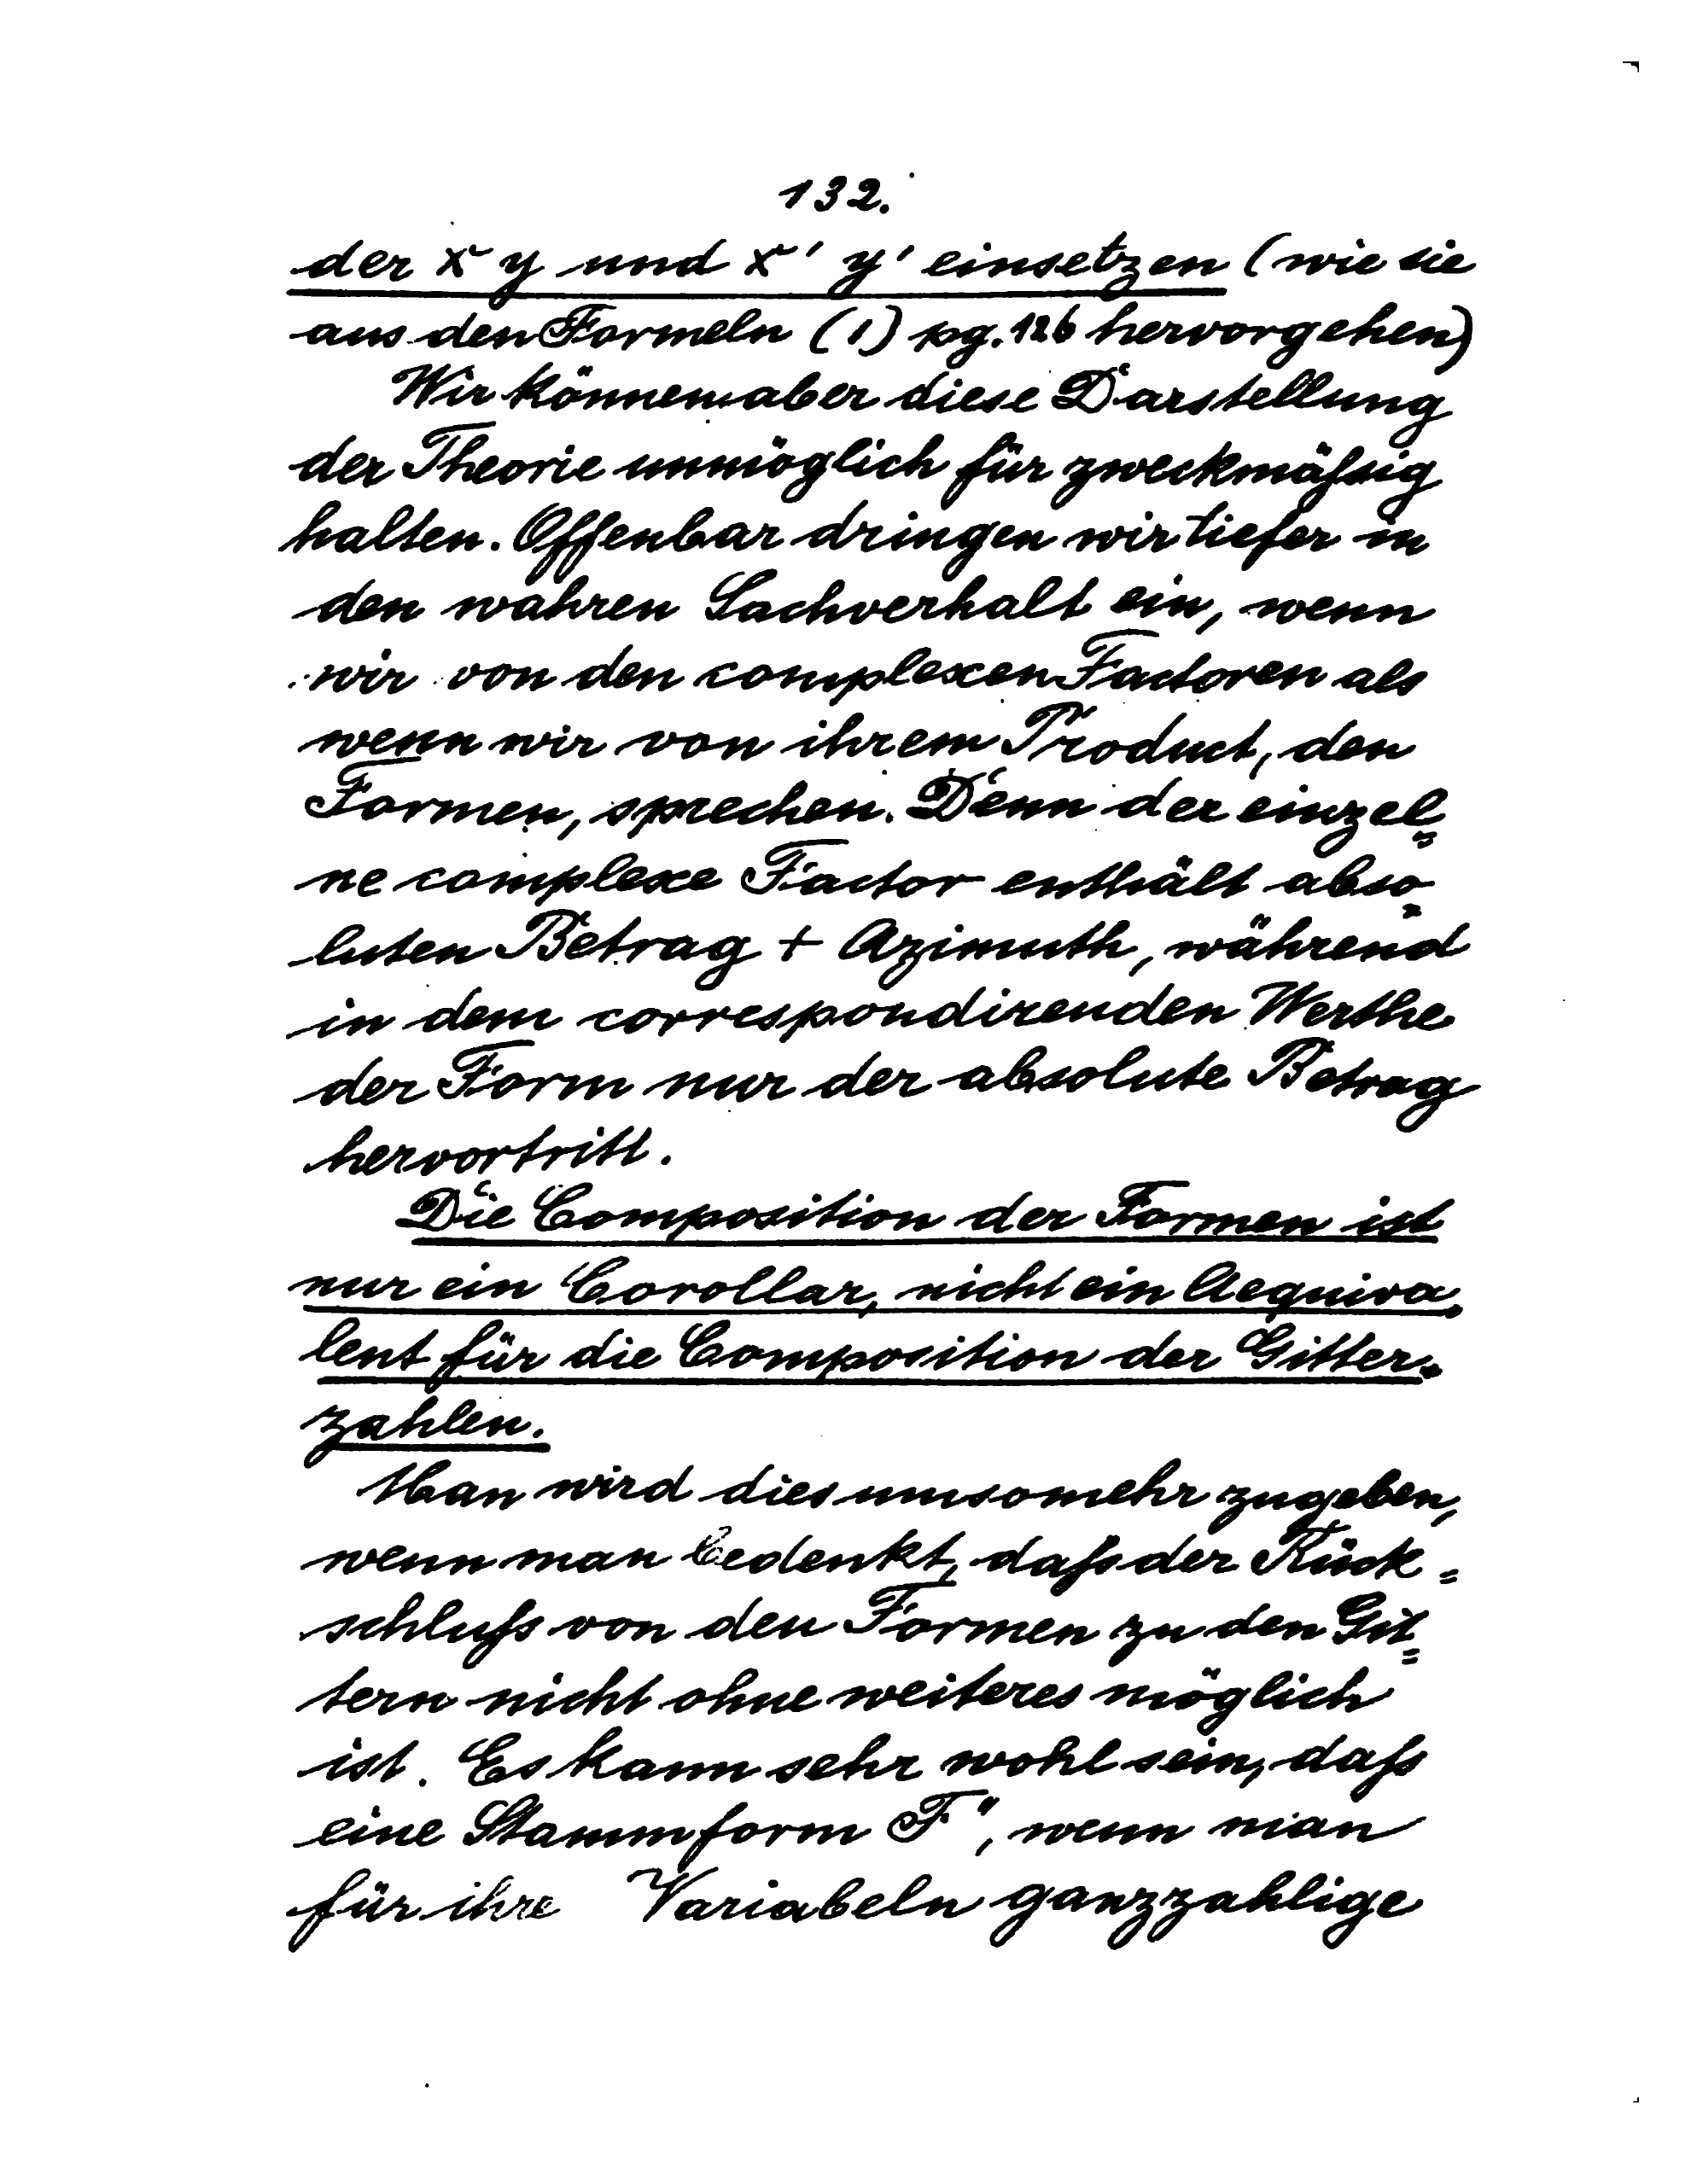 132.
der x y und x' y' einsetzen (wie sie
aus den Formeln (1) pg. 126 hervorgehen)
Wir können aber diese Darstellung
der Theorie unmöglich für zweckmäßig
halten. Offenbar dringen wir tiefer in
den wahren Sachverhalt ein, wenn
wir von den complexen Factoren als
wenn wir von ihrem Product, den
Formen, sprechen. Denn der einzel=
ne complexe Factor enthält abso=
luten Betrag + Azimuth, während
in dem correspondirenden Werthe
der Form nur der absolute Betrag
hervortritt.
Die Composition der Formen ist
nur ein Corollar, nicht ein Aequiva=
lent für die Composition der Gitter=
zahlen.
Man wird dies umsomehr zugeben,
wenn man bedenkt, daß der Rück=
schluß von den Formen zu den Git=
tern nicht ohne weiteres möglich
ist. Es kann sehr wohl sein, daß
eine Stammform F", wenn man
für ihre Variabeln ganzzahlige